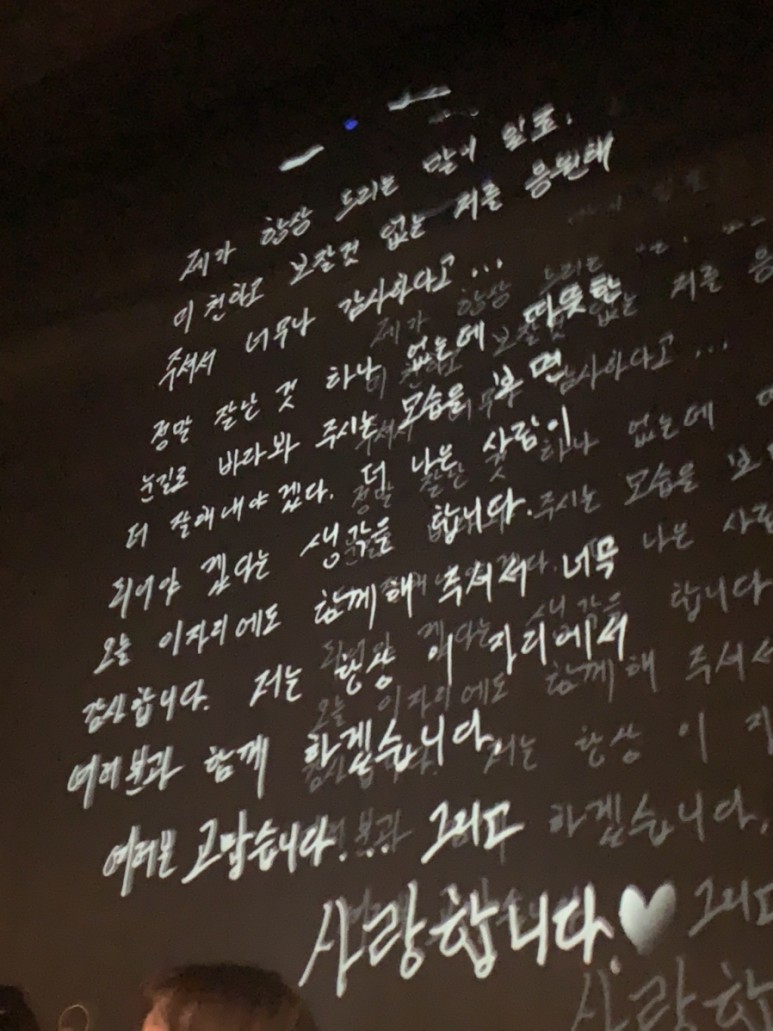 제가 항상 드리는 말이 있죠.
미천하고 보잘것 없는 저를 응원해
주셔서 너무나 감사하다고...
정말 잘난 것 하나 없는데 따뜻한
눈길로 바라봐 주시는 모습을 보면
더 잘해내야 겠다. 더 나은 사람이
되어야 겠다는 생각을 합니다.
오늘 이자리에도 함께해 주셔서 너무
감사합니다. 저는 항상 이 자리에서
여러분과 함께 하겠습니다.
여러분 고맙습니다.... 그리고
사랑합니다.♥